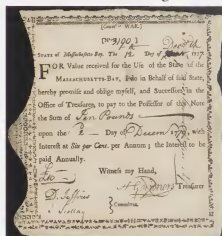 (Count of WAR.)
STATE of Massachusetts-Bay, The 12 Day of 1777
FOR Value received for the Use of the State of
MASSACHUSETTS-BAY, I do in Behalf of said State,
hereby promise and oblige myself, and Successors in the
Office of Treasurer, to pay to the Possessor of this Note
the Sum of Ten Pounds
upon the Day of Decem 1779, with
Interest at Six per Cent. per Annum; the Interest to be
paid Annually.
Witness my Hand,
Treasurer
D. Jeffries
Committee.